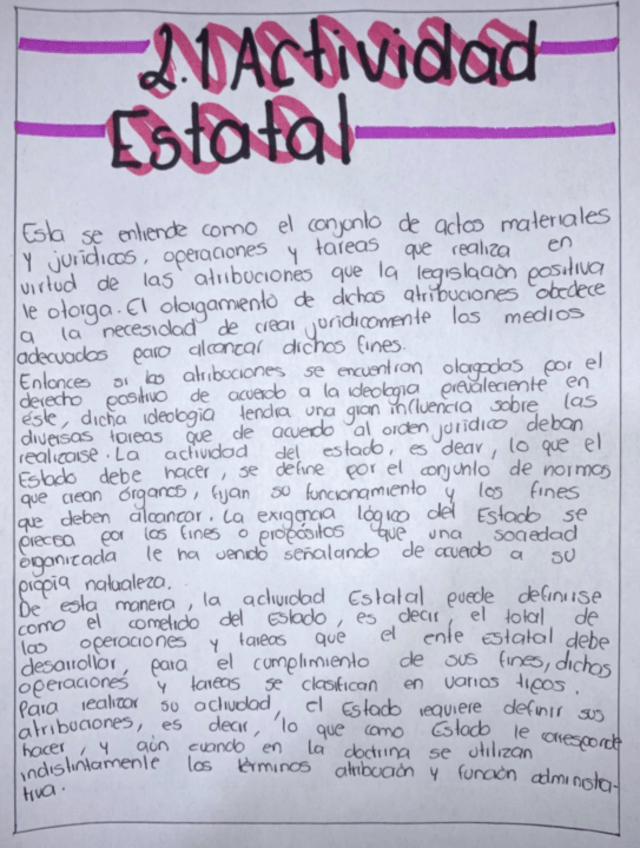 2.1 Actividad
Estatal
Esta se entiende como el conjunto de actos materiales
y jurídicos, operaciones y tareas que realiza en
virtud de las atribuciones que la legislación positiva
le otorga. El otorgamiento de dichas atribuciones obedece
a la necesidad de crear juridicomente los medios
adecuados para alcanzar dichos fines.
Entonces si las atribuciones se encuentran otorgadas por el
derecho positivo de acuerdo a la ideologia prevaleciente en
éste, dicha ideologia tendra una gran influencia sobre las
diversas tareas que de acuerdo al orden juridico deban
realizarse. La actividad del estado, es decir, lo que el
Estado debe hacer, se define por el conjunto de normas
que crean órganos, fijan su funcionamiento y los fines
que deben alcanzar. La exigencia lógica del Estado se
precisa por los fines o propósitos que una sociedad
organizada le ha venido señalando de acuerdo a su
propia naturaleza.
De esta manera, la actividad Estatal puede definirse
como el cometido del Estado, es decir, el total de
las operaciones y tareas que el ente estatal debe
desarrollar, para el cumplimiento de sus fines, dichas
operaciones y tareas se clasifican en varios tipos.
Para realizar su actividad, el Estado requiere definir sus
atribuciones, es decir, lo que como Estado le corresponde
hacer, y aún cuando en la doctrina se utilizan
indistintamente los términos atribución y función administra-
tiva.